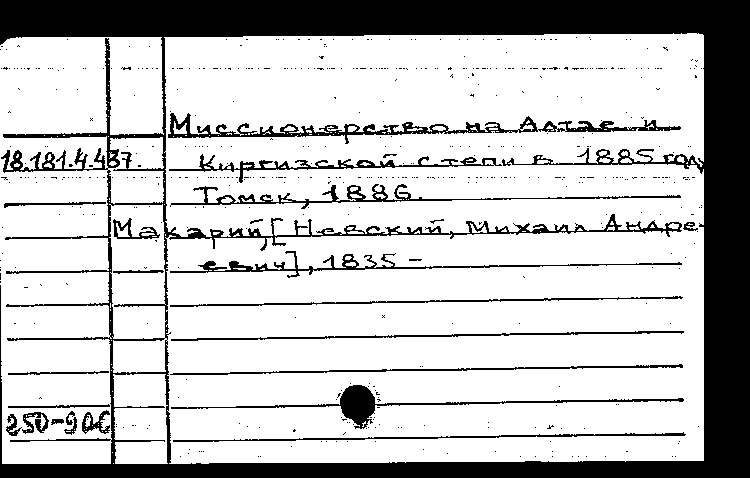 Миссионерство на Алтае и
18.181.4.437. Киргизской степи в 1885 году
Томск, 1886.
Макарий, [Невский, Михаил Андре-
евич], 1835 –
250-900